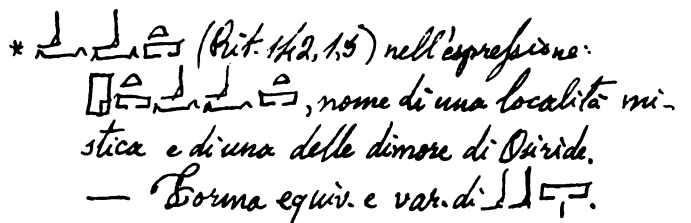 * (Rit. 142, 1, 5) nell'espressione:
, nome di una località mi-
stica e di una delle dimore di Osiride.
— Forma equiv. e var. di .